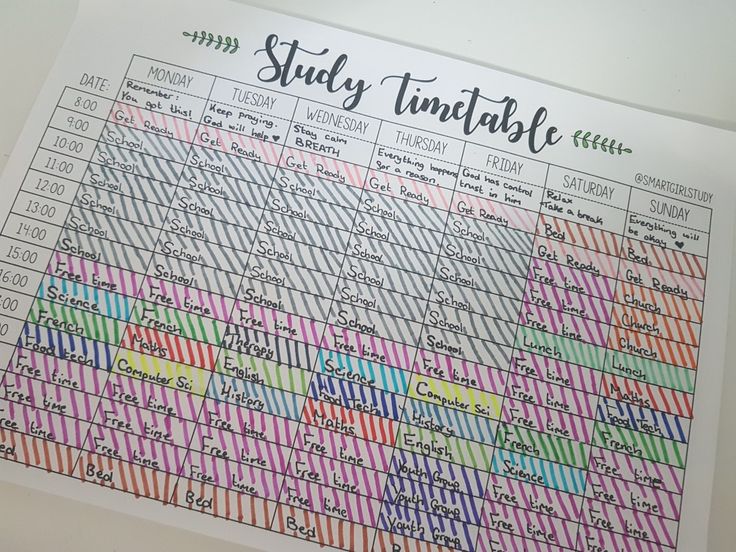 Study Timetable
@SMARTGIRLSTUDY
DATE:
8:00
9:00
10:00
11:00
12:00
13:00
14:00
15:00
16:00
MONDAY
Remember:
You got this!
Get Ready
School
School
School
School
School
Free time
Science
French
Food tech
Free time
Free time
Free time
Bed
TUESDAY
Keep praying.
God will help ♥
Get Ready
School
School
School
School
School
Free time
French
Maths
Computer Sci
Free time
Free time
Free time
Bed
WEDNESDAY
Stay calm
BREATH
Get Ready
School
School
School
School
School
Free time
Therapy
English
History
Free time
Free time
Free time
Bed
THURSDAY
Everything happens
for a reason.
Get Ready
School
School
School
School
School
Free time
Science
Food Tech
Maths
Free time
Free time
Free time
Bed
FRIDAY
God has control
trust in him
Get Ready
School
School
School
School
School
Free time
Computer Sci
History
English
Youth Group
Youth Group
Youth Group
Bed
SATURDAY
Relax
Take a break
Bed
Get Ready
Free time
Free time
Free time
Lunch
Free time
Free time
Free time
French
Science
Free time
Free time
SUNDAY
Everything will
be okay ♥
Bed
Get Ready
Church
Church
Church
Lunch
Maths
Food Tech
French
Free time
Free time
Free time